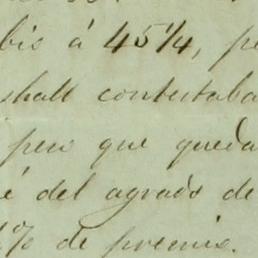 bio á 45 1/4, pe
shall contestaba
pero que queda
é del agrado de
1% de premio.